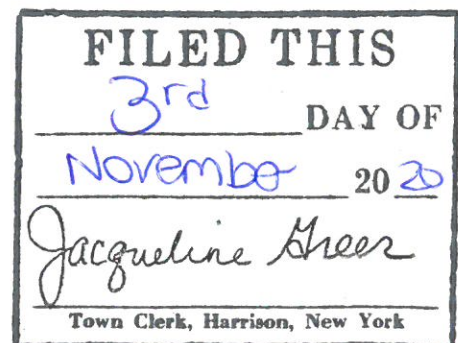 FILED THIS
3rd DAY OF
November 20 20
Jacqueline Greer
Town Clerk, Harrison, New York